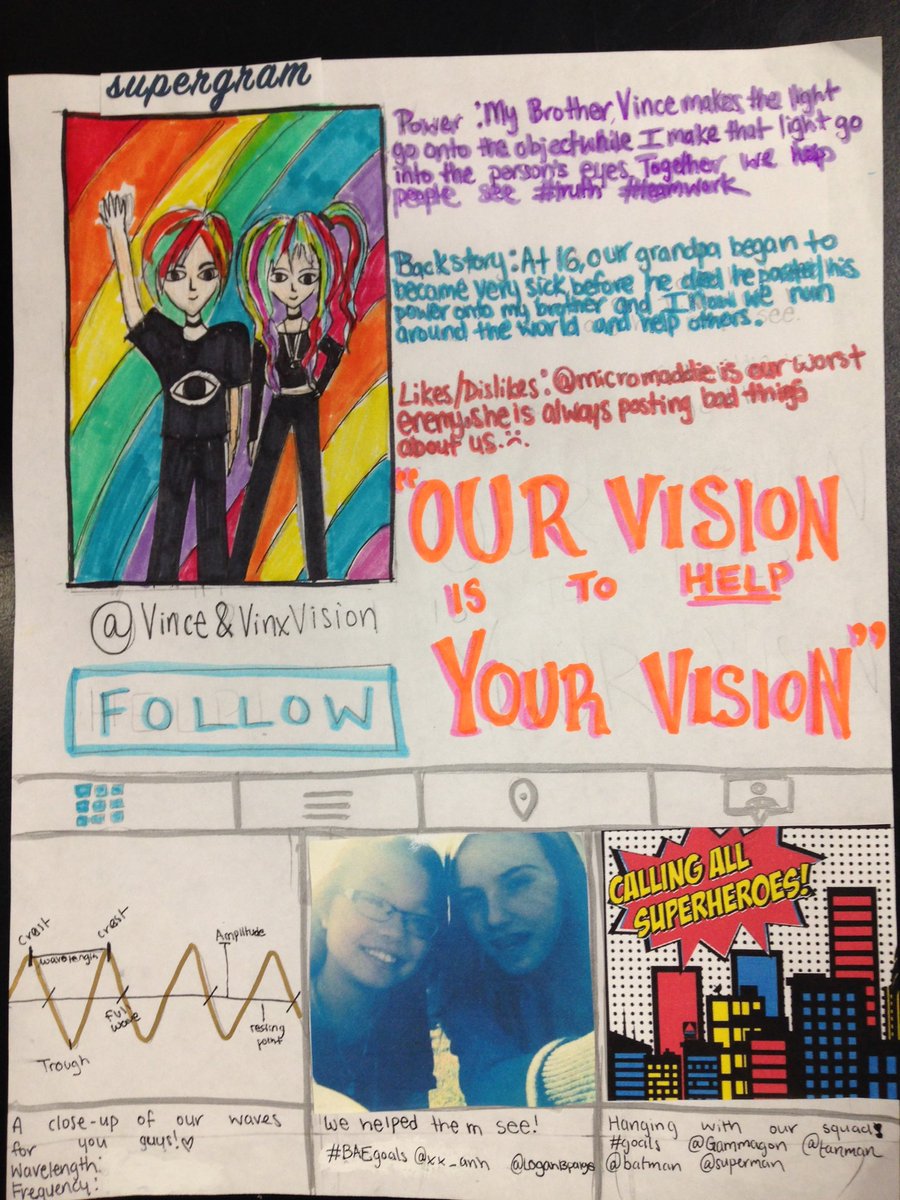 supergram
Power: My Brother, Vince makes the light
go onto the object while I make that light go
into the person's eyes. Together we help
people see #truth #teamwork
Backstory: At 16, our grandpa began to
become very sick, before he died he passed his
power onto my brother and I. Now we run
around the world and help others.
see.
Likes/Dislikes: @micromaddie is our worst
enemy. she is always posting bad things
about us. :(.
"OUR VISION
IS TO HELP
YOUR VISION"
@Vince&VinxVision
FOLLOW
crest crest Amplitude
wavelength
full
wave
resting
point
Trough
A close-up of our waves
for you guys!♡
Wavelength:
Frequency:
We helped them see!
#BAEgoals @xx_ann @Logan13paige
CALLING ALL
SUPERHEROES!
Hanging with our squad!
#goals @Gammagon @tanman
@batman @superman